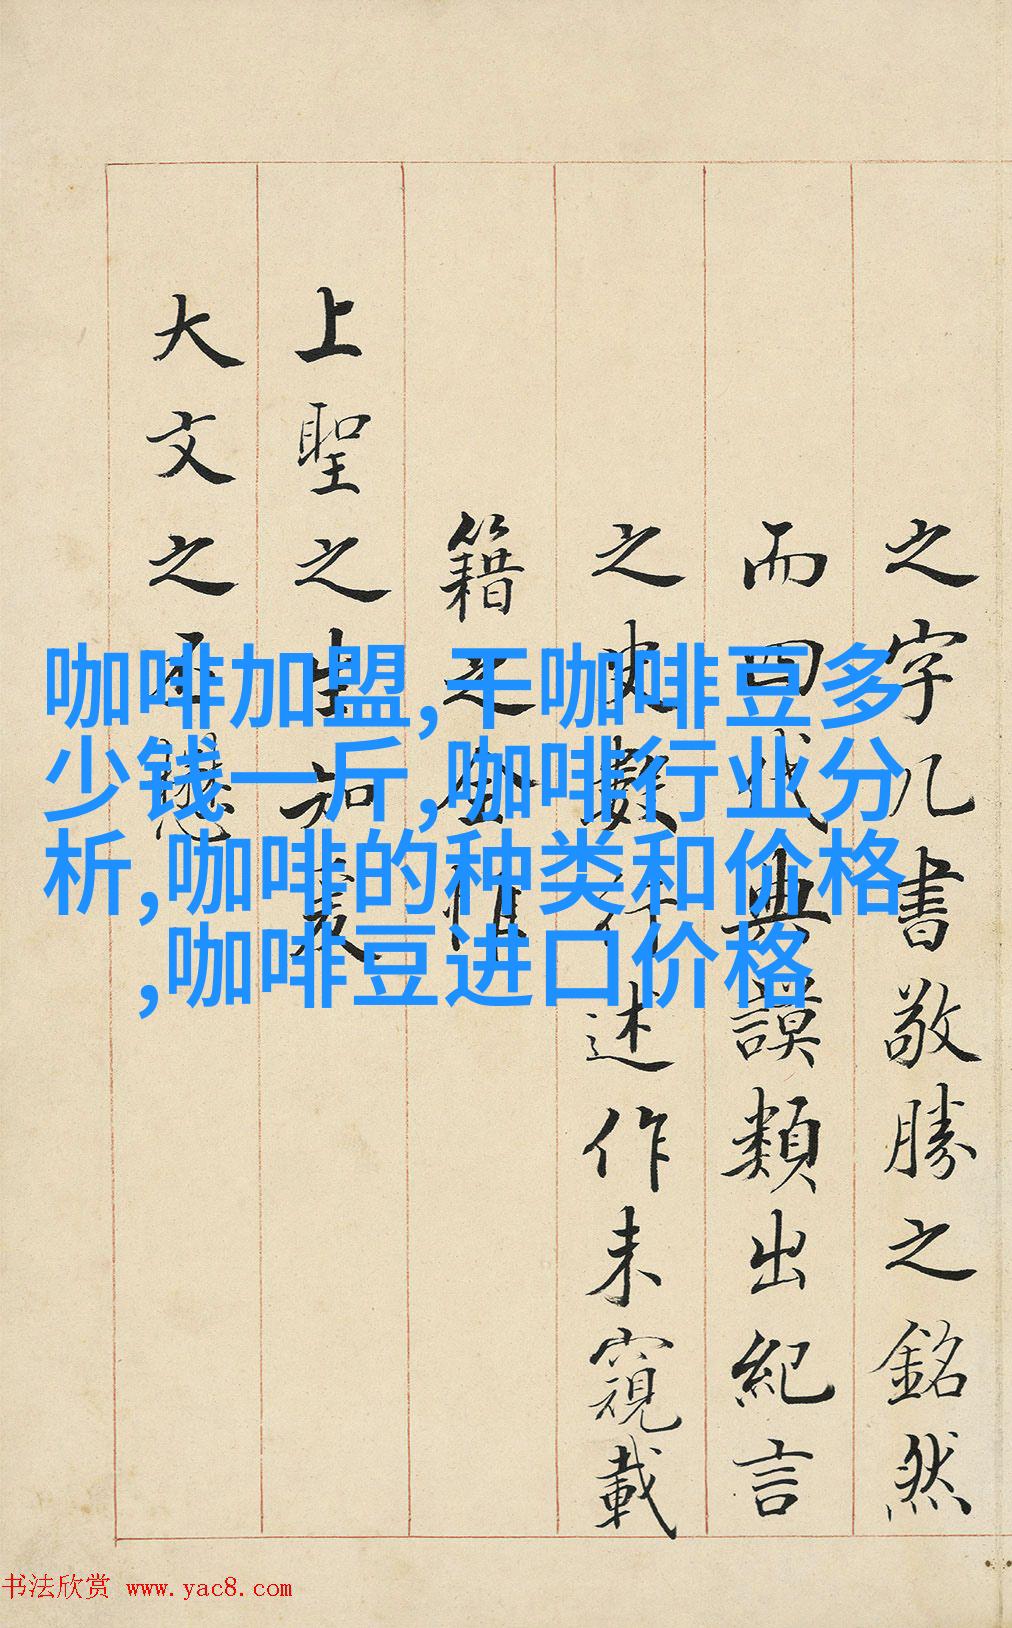 之字几書敬勝之銘然
而四代典謨類出紀言
之史數行述作未窺載
籍之全惟
上聖之生知袤
大文之丕
咖啡加盟,干咖啡豆多
少钱一斤,咖啡行业分
析,咖啡的种类和价格
,咖啡豆进口价格
书法欣赏 www.yac8.com